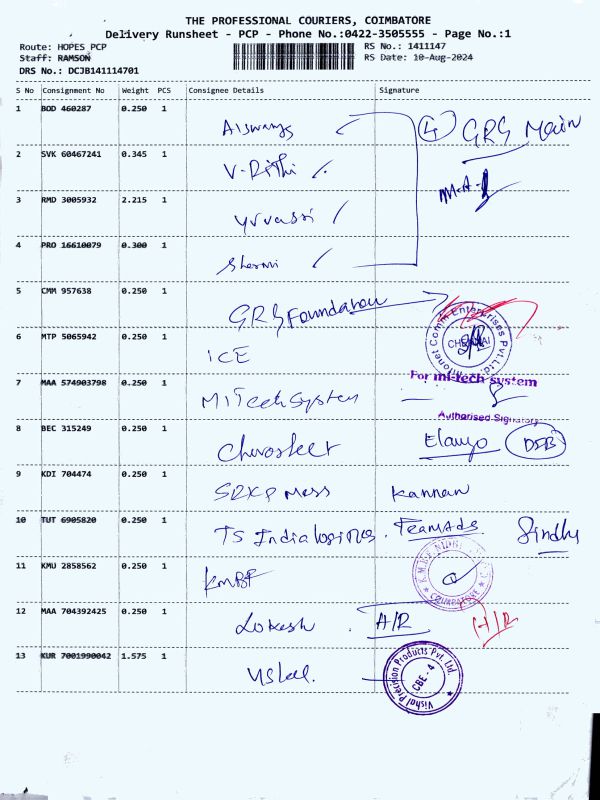 THE PROFESSIONAL COURIERS, COIMBATORE
Delivery Runsheet - PCP - Phone No.:0422-3505555 - Page No.:1
Route: HOPES PCP
RS No.: 1411147
Staff: RAMSON
RS Date: 10-Aug-2024
DRS No.: DCJB141114701
S No Consignment No Weight PCS Consignee Details Signature
1 BOD 460287 0.250 1
4 GRG Main
2 SVK 60467241 0.345 1 V-Rithi
3 RMD 3005932 2.215 1
4 PRO 16610079 0.300 1
5 CMM 957638 0.250 1 GRG Foundation
6 MTP 5065942 0.250 1 ICE
CHENNAI
For mi-tech system
7 MAA 574903798 0.250 1 MITech System
Authorised Signatory
8 BEC 315249 0.250 1
9 KDI 704474 0.250 1 Kannan
10 TUT 6905820 0.250 1 TS India logistics. TeamAds Sindhu
11 KMU 2858562 0.250 1 KMBF
COIMBATORE
12 MAA 704392425 0.250 1 Lokesh A/R H/R
13 KUR 7001990042 1.575 1
Vishal Precision Products Pvt. Ltd.
CBE - 4